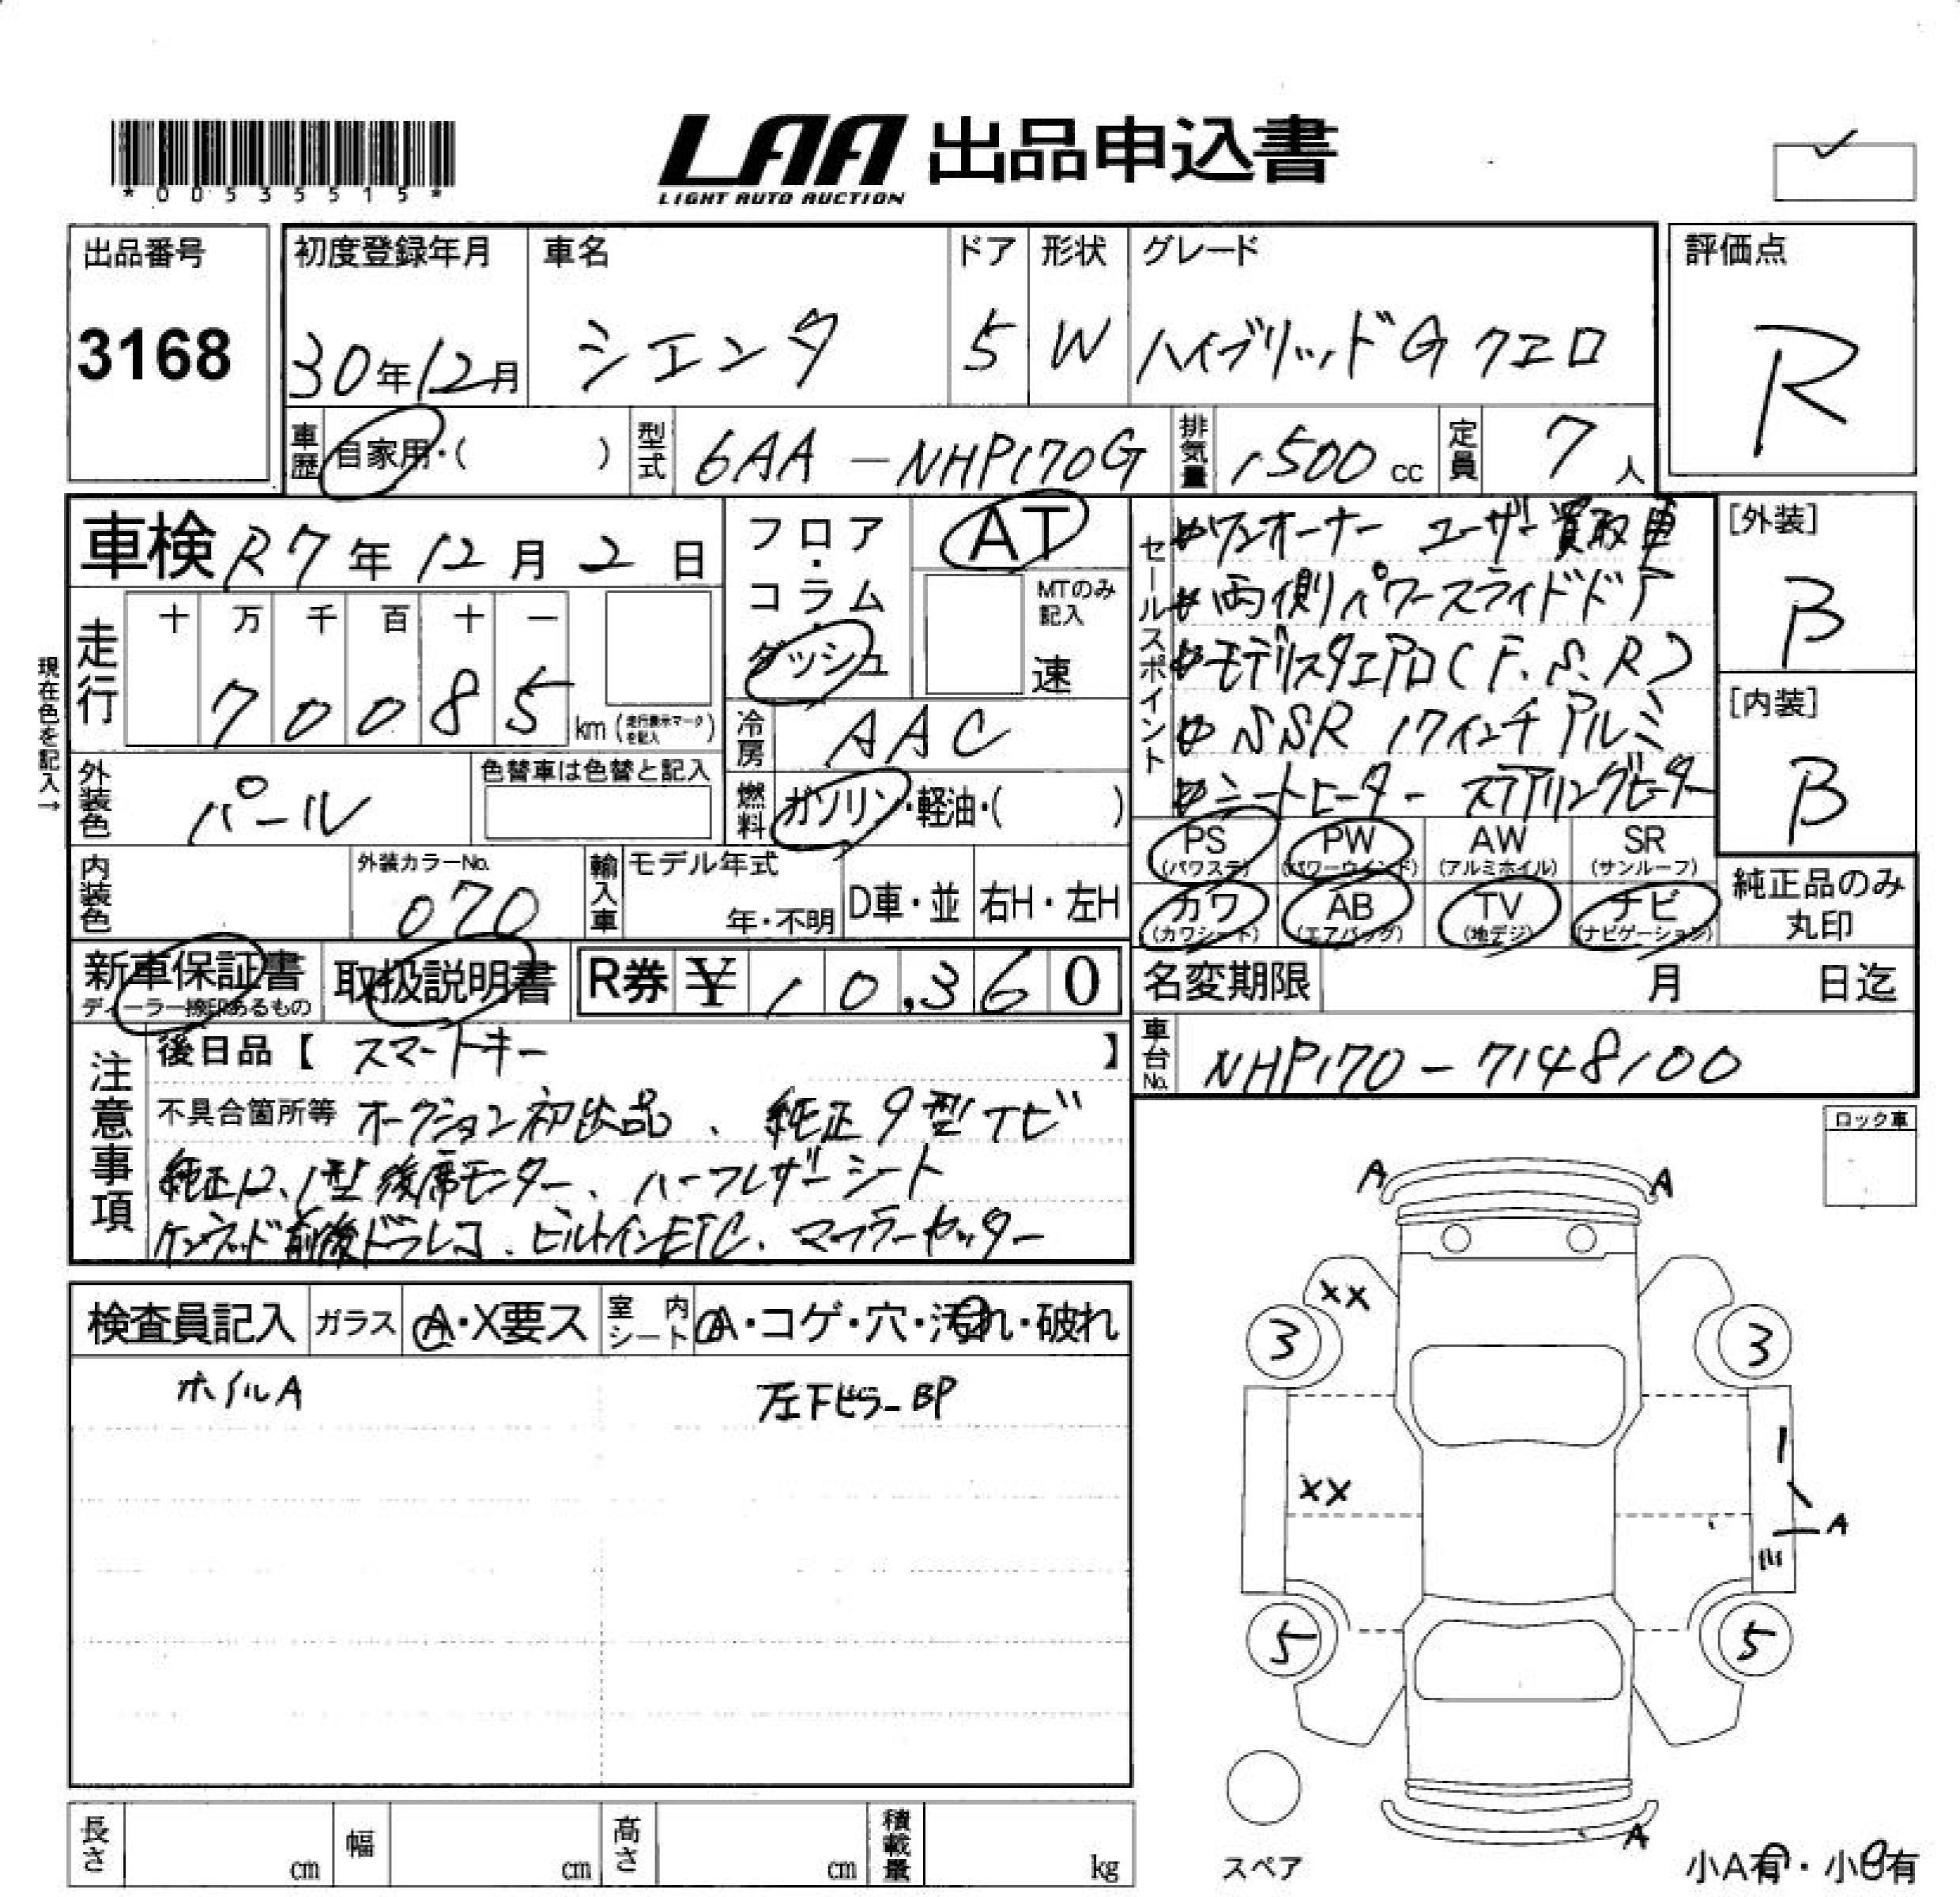 *00535515*
LAA 出品申込書
LIGHT AUTO AUCTION
出品番号
3168
初度登録年月
30年12月
車名
シエンタ
ドア
5
形状
W
グレード
ハイブリッドG クエロ
評価点
R
車歴 自家用・( )
型式 6AA - NHP170G
排気量 1500 cc
定員 7 人
車検 R7年12月2日
走行 十 万 千 百 十 一
70085 km (走行表示マークを記入)
現在色を記入→
外装色 パール
色替車は色替と記入
内装色
外装カラーNo.
070
フロア・コラム・ダッシュ
AT
MTのみ記入
速
冷房 AAC
燃料 ガソリン・軽油・( )
輸入車 モデル年式
年・不明
D車・並
右H・左H
セールスポイント
ワンオーナー ユーザー買取車
両側パワースライドドア
モデリスタエアロ(F.S.R)
SSR 17インチアルミ
シートヒーター ステアリングヒーター
[外装]
B
[内装]
B
PS (パワステ)
PW (パワーウインド)
AW (アルミホイル)
SR (サンルーフ)
カワ (カワシート)
AB (エアバッグ)
TV (地デジ)
ナビ (ナビゲーション)
純正品のみ丸印
新車保証書
ディーラー捺印あるもの
取扱説明書
R券 ¥ 10,360
名変期限 月 日迄
車台No. NHP170-7148100
注意事項
後日品【 スマートキー 】
不具合箇所等 オークション初出品、純正9型ナビ
純正12.1型後席モニター、ハーフレザーシート
ケンウッド前後ドラレコ、ビルトインETC、マフラーカッター
ロック車
検査員記入
ガラス A・X要ス
室内シート A・コゲ・穴・汚れ・破れ
ホイルA
左下ピラーBP
A A
XX
3 3
XX
A
5 5
A
スペア
小A有・小B有
長さ cm
幅 cm
高さ cm
積載量 kg